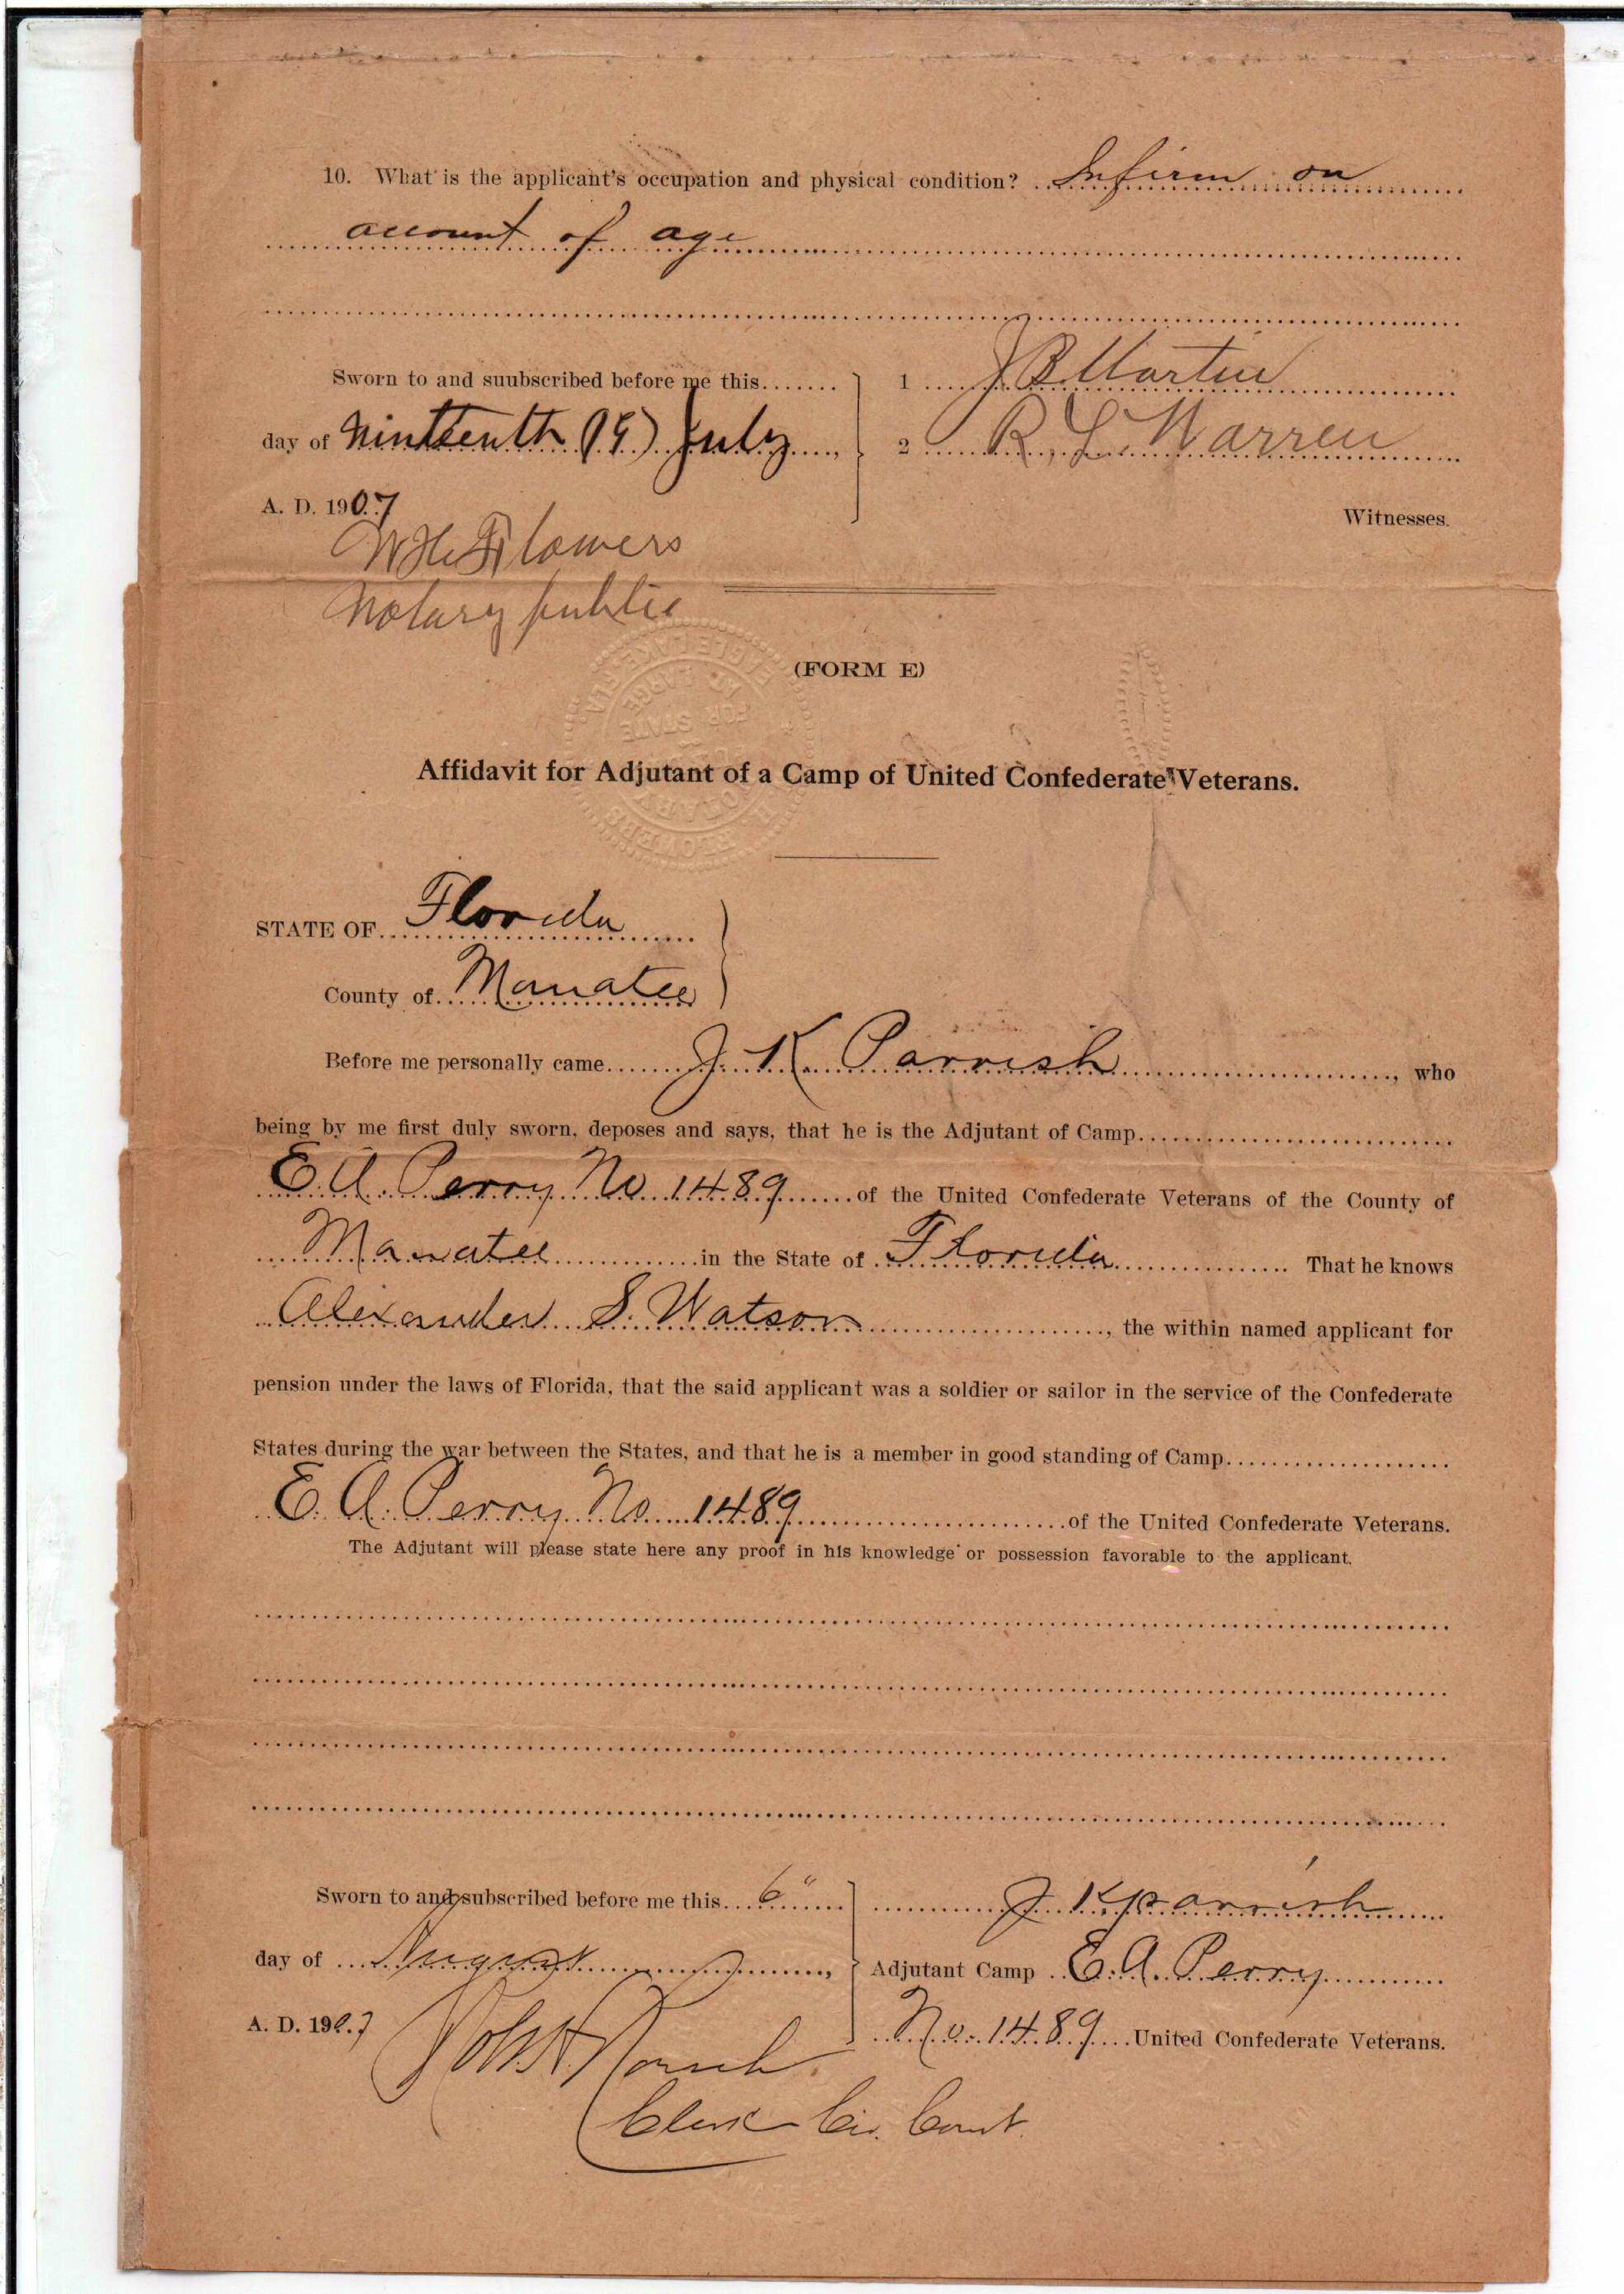 10. What is the applicant's occupation and physical condition? Infirm on
account of age
Sworn to and suubscribed before me this
day of Ninteenth (19) July,
A. D. 1907
1 J B Martin
2 R. L. Warren
Witnesses.
W H Flowers
Notary public
(FORM E)
Affidavit for Adjutant of a Camp of United Confederate Veterans.
STATE OF Florida
County of Manatee
Before me personally came J. K. Parrish, who
being by me first duly sworn, deposes and says, that he is the Adjutant of Camp
E. A. Perry No 1489 of the United Confederate Veterans of the County of
Manatee in the State of Florida That he knows
Alexander S. Watson, the within named applicant for
pension under the laws of Florida, that the said applicant was a soldier or sailor in the service of the Confederate
States during the war between the States, and that he is a member in good standing of Camp
E. A. Perry No. 1489 of the United Confederate Veterans.
The Adjutant will please state here any proof in his knowledge or possession favorable to the applicant.
Sworn to and subscribed before me this 6"
day of August,
A. D. 1907
J K Parrish
Adjutant Camp E. A. Perry
No. 1489 United Confederate Veterans.
Clerk Cir. Court.